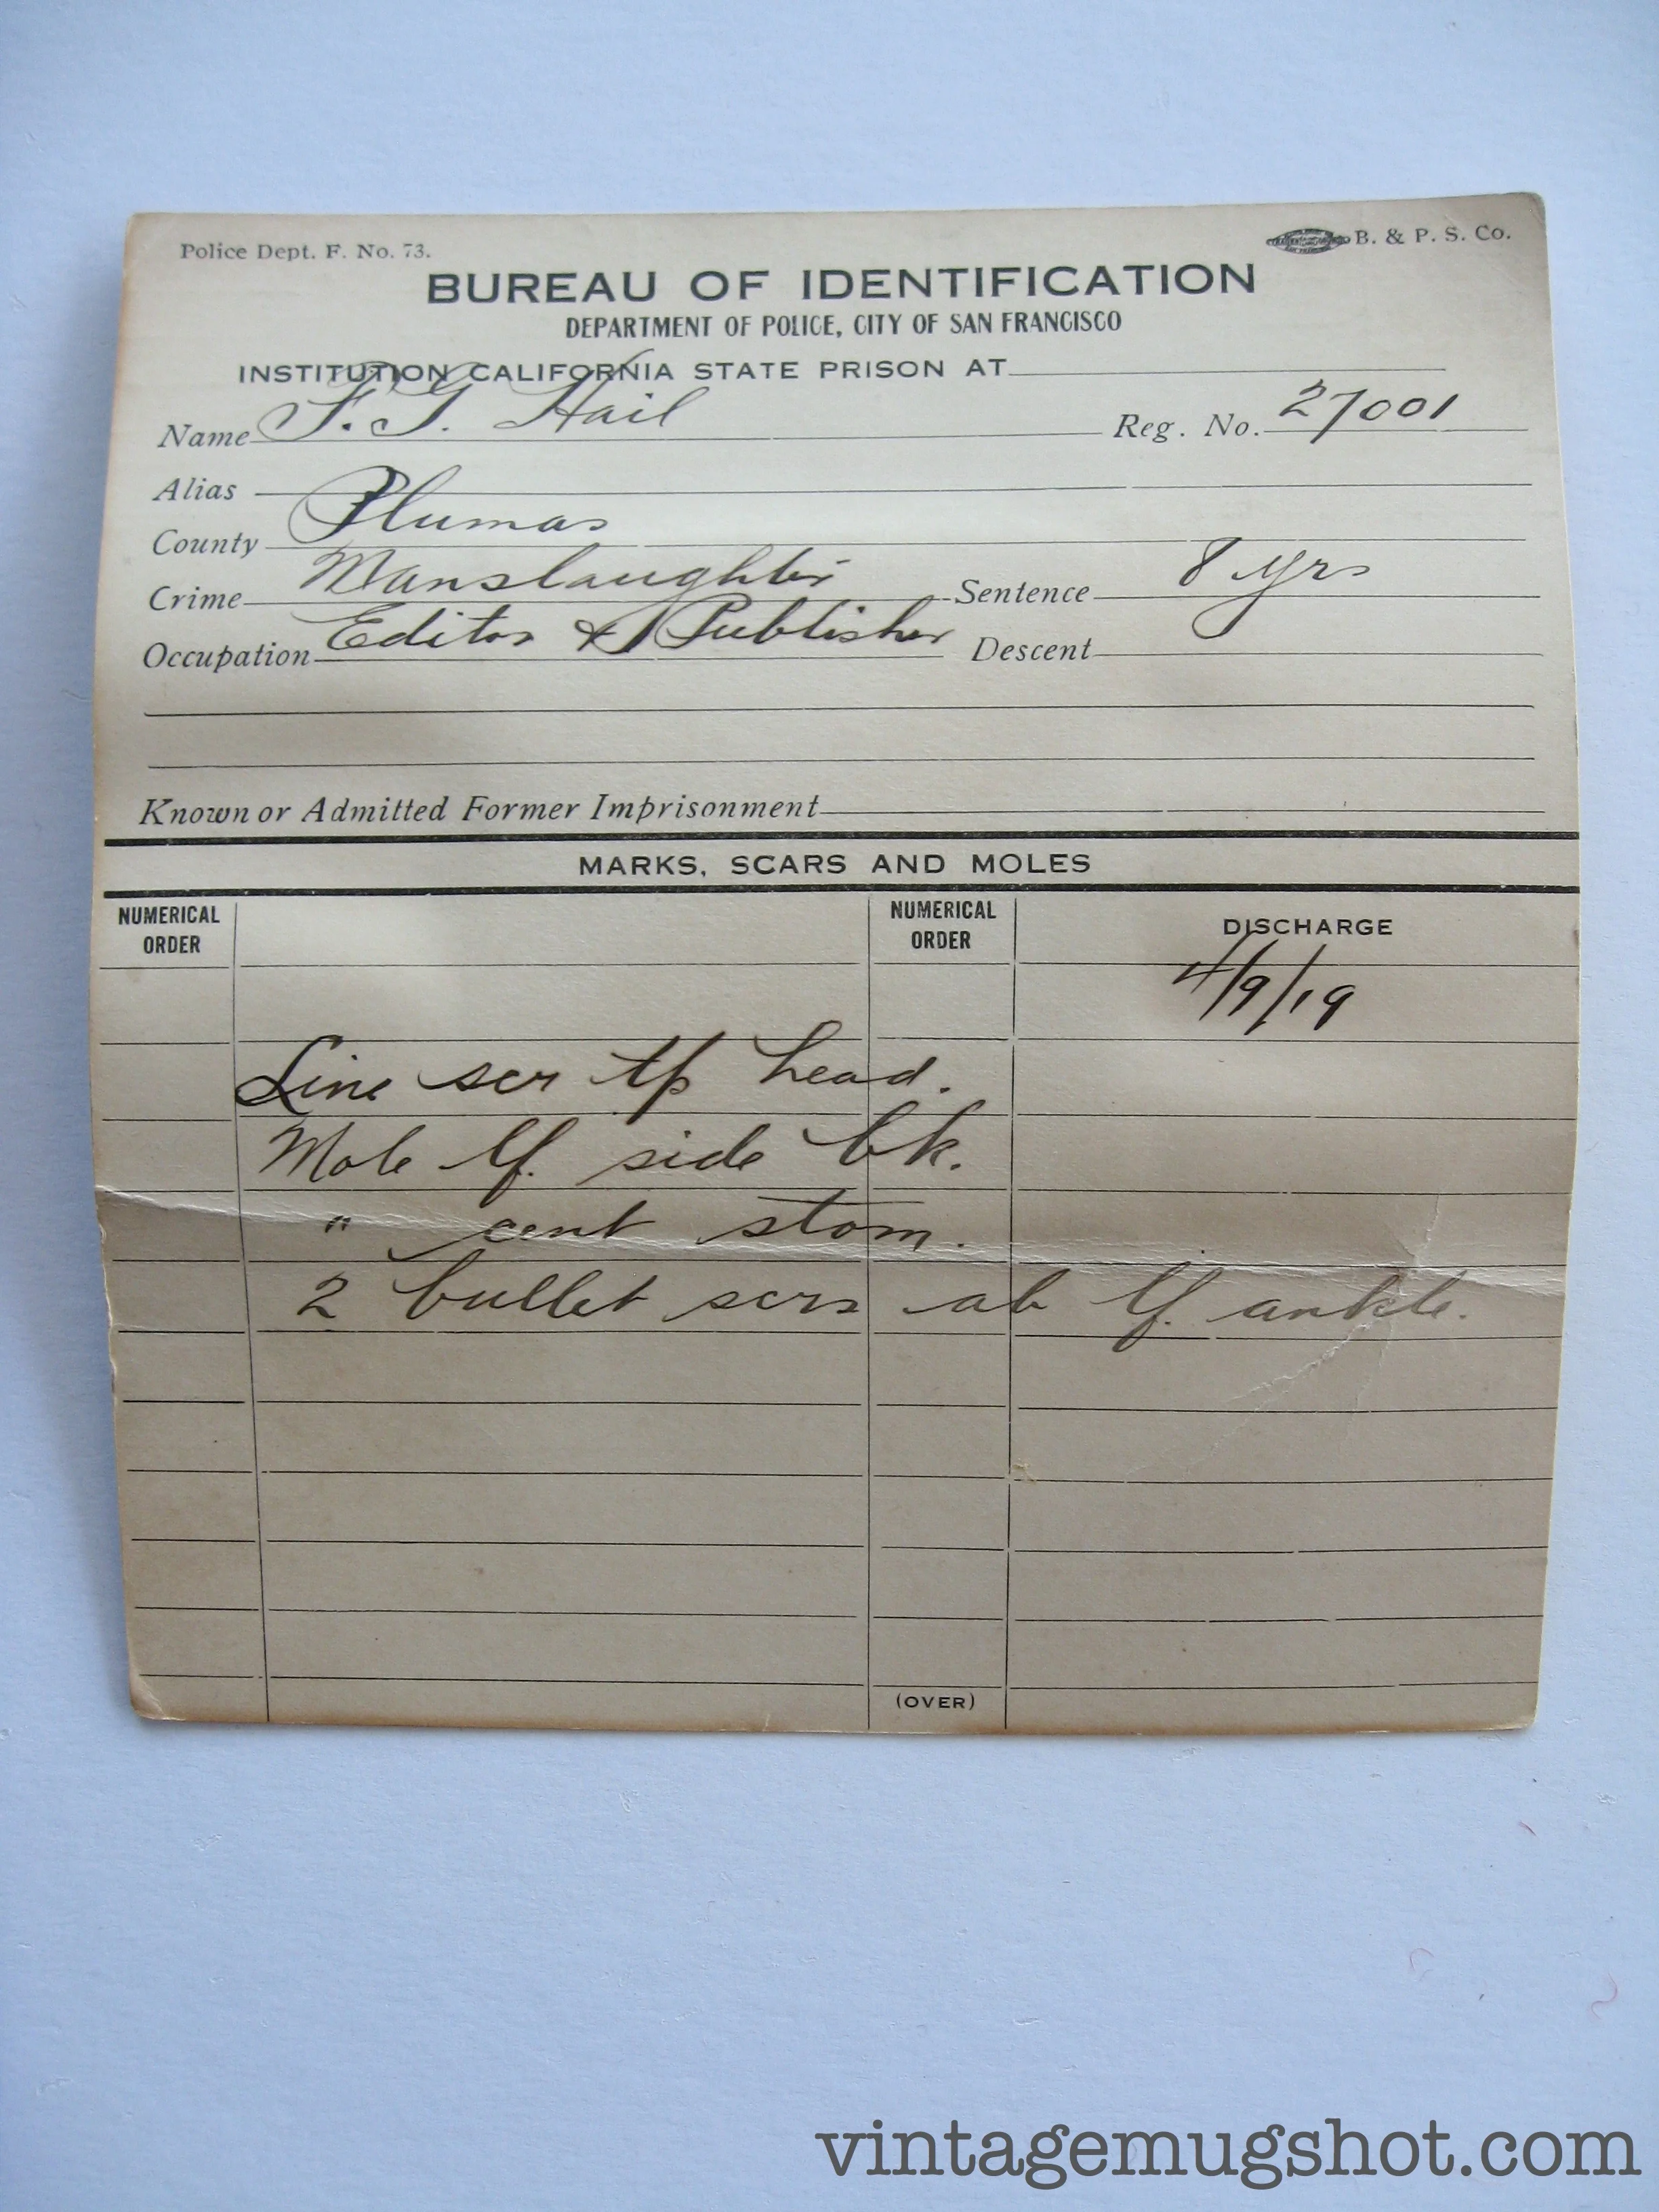 Police Dept. F. No. 73. B. & P. S. Co.
BUREAU OF IDENTIFICATION
DEPARTMENT OF POLICE, CITY OF SAN FRANCISCO
INSTITUTION CALIFORNIA STATE PRISON AT
Name F. G. Hail Reg. No. 27001
Alias
County Plumas
Crime Manslaughter Sentence 8 yrs
Occupation Editor & Publisher Descent
Known or Admitted Former Imprisonment
MARKS, SCARS AND MOLES
NUMERICAL ORDER NUMERICAL ORDER DISCHARGE
4/9/19
Line scr tp head.
Mole lf. side bk.
" cent stom.
2 bullet scrs ab lf. ankle.
(OVER)
vintagemugshot.com